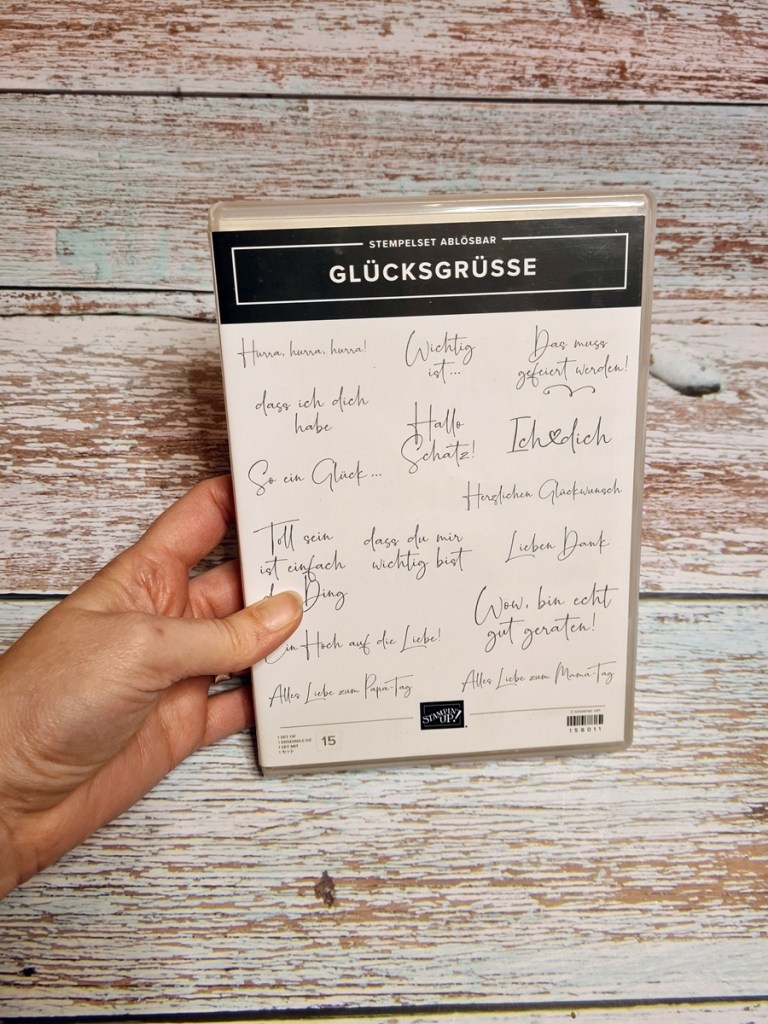 STEMPELSET ABLÖSBAR
GLÜCKSGRÜSSE
Hurra, hurra, hurra!
Wichtig
ist...
Das muss
gefeiert werden!
dass ich dich
habe
Hallo
Schatz!
Ich dich
So ein Glück...
Herzlichen Glückwunsch
Toll sein
ist einfach
Ding
dass du mir
wichtig bist
Lieben Dank
Wow, bin echt
gut geraten!
Ein Hoch auf die Liebe!
Alles Liebe zum Papa-Tag
Alles Liebe zum Mama-Tag
STAMPIN' UP!
© STAMPIN' UP!
158011
1 SET OF
1 ENSEMBLE DE
1 SET MIT
1セット
15